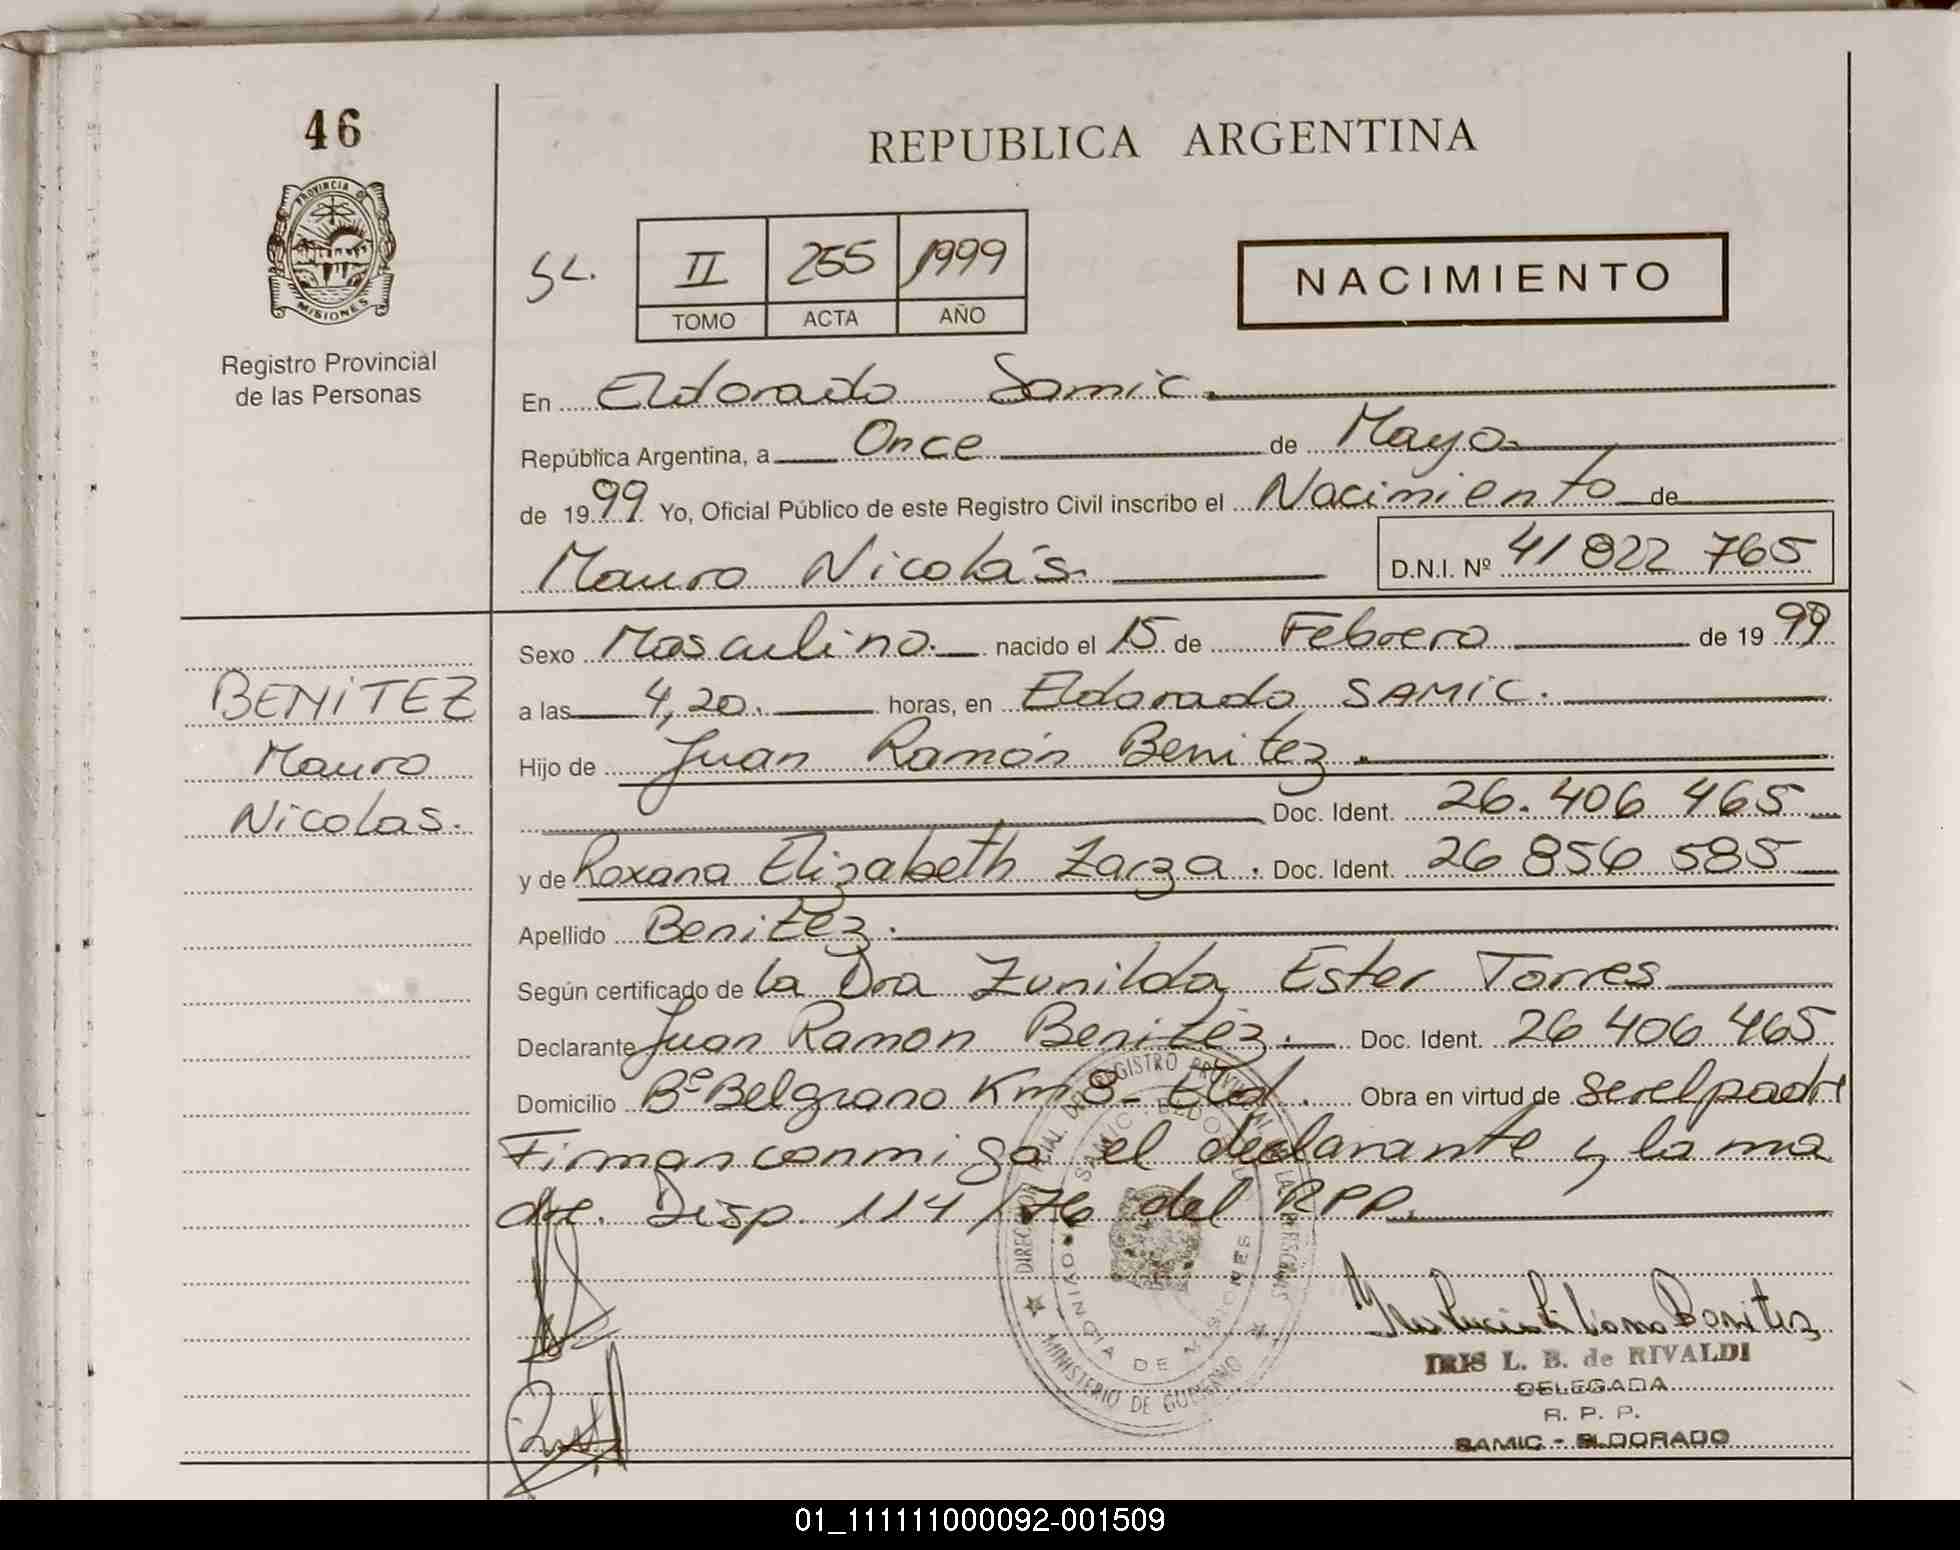 46
PROVINCIA DE
MISIONES
Registro Provincial
de las Personas
REPUBLICA ARGENTINA
SL.
II 255 1999
TOMO ACTA AÑO
NACIMIENTO
En Eldorado Samic.
República Argentina, a Once de Mayo
de 1999 Yo, Oficial Público de este Registro Civil inscribo el Nacimiento de
Mauro Nicolás. D.N.I. Nº 41 822 765
BENITEZ
Mauro
Nicolas.
Sexo Masculino. nacido el 15 de Febrero de 1999
a las 4,20. horas, en Eldorado SAMIC.
Hijo de Juan Ramón Benitez.
Doc. Ident. 26.406 465
y de Roxana Elizabeth Zarza. Doc. Ident. 26 856 585
Apellido Benitez.
Según certificado de la Dra Zunilda Ester Torres
Declarante Juan Ramon Benitez. Doc. Ident. 26 406 465
Domicilio Bº Belgrano Km 8- Eld. Obra en virtud de ser el padre
Firman conmigo el declarante y la ma
dre. Disp. 114/76 del RPP.
PROVINCIA DE MISIONES
MINISTERIO DE GOBIERNO
Benitez
IRIS L. B. de RIVALDI
DELEGADA
R. P. P.
SAMIC - ELDORADO
01_111111000092-001509